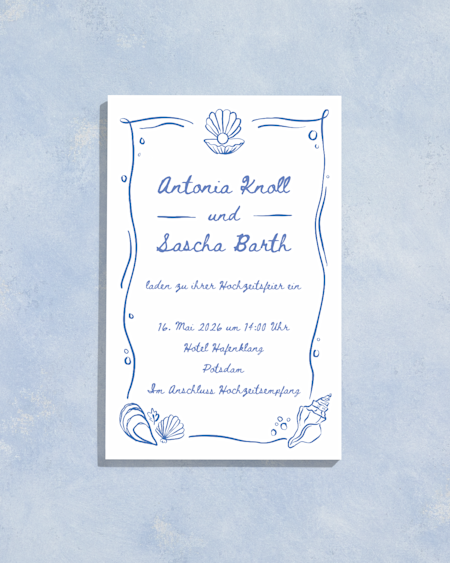 Antonia Knoll
und
Sascha Barth
laden zu ihrer Hochzeitsfeier ein
16. Mai 2026 um 14:00 Uhr
Hotel Hafenklang
Potsdam
Im Anschluss Hochzeitsempfang